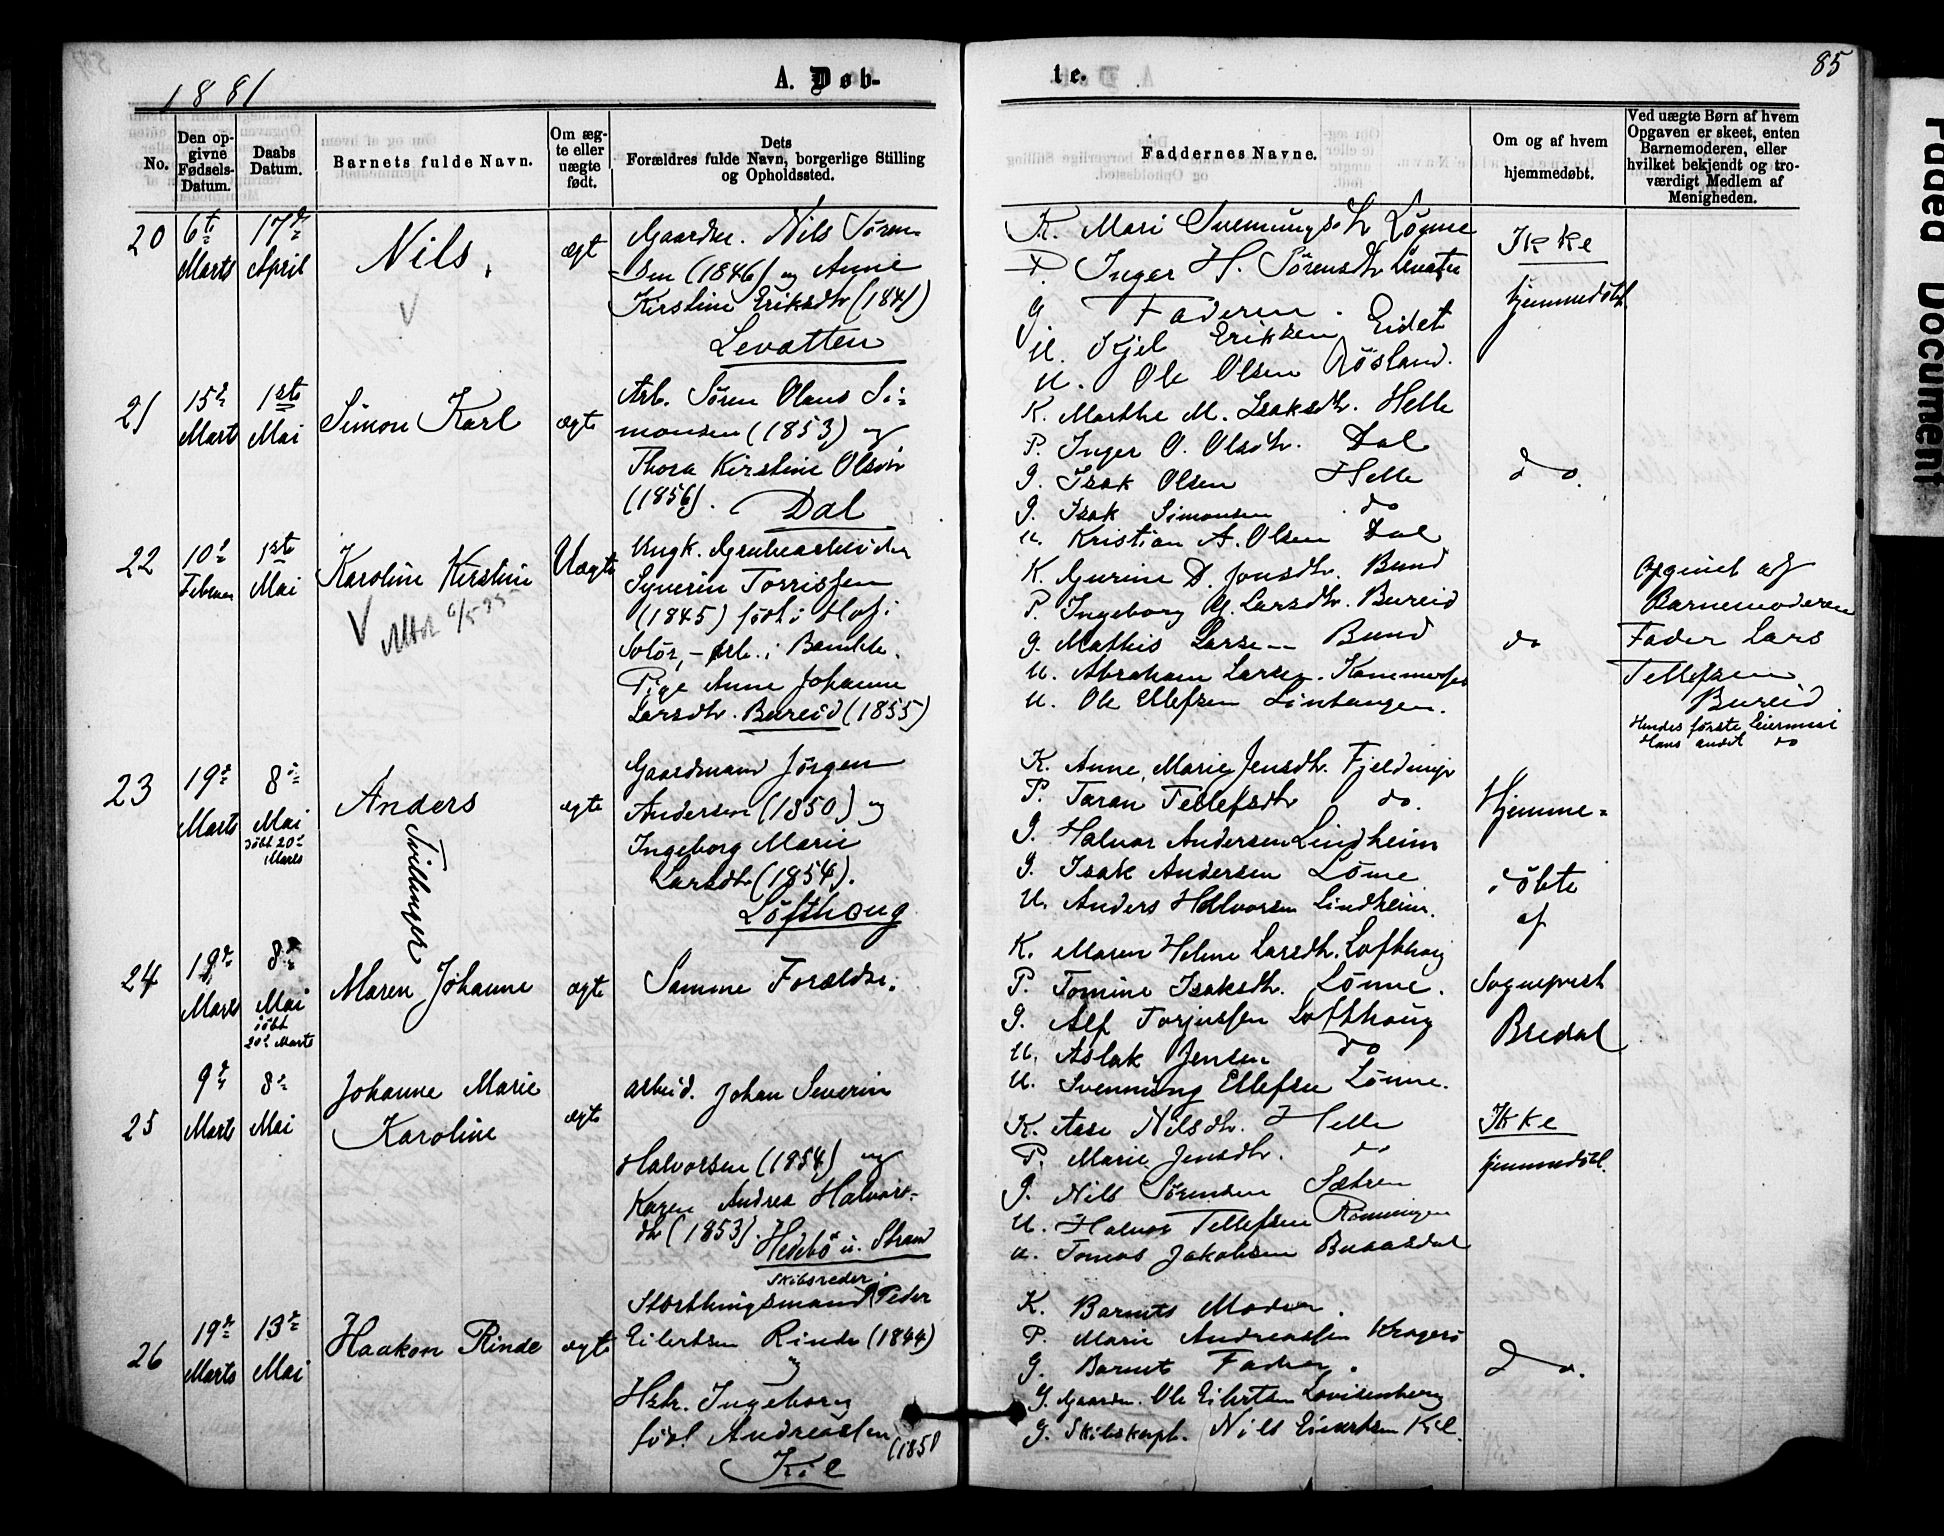 1881
A. Døb-
te.
85
No.
Den op-
givne
Fødsels-
Datum.
Daabs
Datum.
Barnets fulde Navn.
Om æg-
te eller
uægte
født.
Dets
Forældres fulde Navn, borgerlige Stilling
og Opholdssted.
Faddernes Navne.
Om og af hvem
hjemmedøbt.
Ved uægte Børn af hvem
Opgaven er skeet, enten
Barnemoderen, eller
hvilket bekjendt og tro-
værdigt Medlem af
Menigheden.
20
6te
Marts
17de
April
Nils
ægt
Gaardbr. Nils Søren-
sen (1846) og Anne
Kirstine Eriksdtr (1841)
Levatten
K. Mari Svennungsdtr Lønne
P. Inger H. Sørensdtr
G. Faderen
U. Kjel Eriksen Eidet
U. Ole Olsen Røsland.
Ikke
hjemmedøbt
21
15de
Mart
1ste
Mai
Simon Karl
ægte
Arb. Søren Olaus Si-
monsen (1853) og
Thora Kirstine Olsdtr
(1856). Dal
K. Marthe M. Isaksdtr. Helle
P. Inger O. Olsdtr. Dal
G. Isak Olsen Helle
G. Isak Simonsen do
U. Kristian A. Olsen Dal
do.
22
10de
Februar
1ste
Mai
Karoline Kirstine
Uægte
Ungk. Grubearbeider
Syverin Torrissen
(1845) født i Hof i
Solør, – arb. i Bamble.
Pige Anne Johanne
Larsdtr. Bureid (1855)
K. Gurine D. Jonsdtr. Bund
P. Ingeborg G. Larsdtr. Bureid
G. Mathis Larsen Bund
U. Abraham Larsen
U. Ole Ellefsen Lintangen.
do
Opgivet af
Barnemoderen
Fader Lars
Tellefsen
Bureid
Hendes første Leiermaal
Hans andet do
23
19de
Marts
8de
Mai
døbt 20de
Marts
Anders
Tvillinger
ægte
Gaardmand Jørgen
Andersen (1850) og
Ingeborg Marie
Larsdtr (1854).
Lofthoug
K. Anne Marie Jensdtr.
P. Taran Tellefsdtr do.
G. Halvor Andersen Lindheim
G. Isak Andersen Lønne
U. Anders Halvorsen Lindheim.
Hjemme-
døbte
af
24
19de
Marts
8de
Mai
døbt
20de Marts
Maren Johanne
ægte
Samme Forældre.
K. Maren Helene Larsdtr. Lofthoug
P. Tomine Isaksdtr. Lønne.
G. Alf Torjussen Lofthoug
U. Aslak Jensen do
U. Svennung Ellefsen Lønne.
Sogneprest
Bredal
25
9de
Marts
8de
Mai
Johanne Marie
Karoline
ægte
arbeid. Johan Severin
Halvorsen (1854) og
Karen Andrea Halvors-
dtr (1853). Hedebø u. Strand
K. Aase Nilsdtr. Helle
P. Marie Jensdtr. do
G. Nils Sørensen Sætren
U. Halvor Tellefsen Rønningen
U. Tomas Jakobsen
Ikke
hjemmedøbt.
26
19de
Marts
13de
Mai
Haakon Rinde
ægte
Skibsreder
Storthingsmand Peder
Eilertsen Rinde (1844)
og
Hstr. Ingeborg
født Andreassen (1850
Kil
K. Barnets Moder.
P. Marie Andreassen Kragerø
G. Barnets Fader.
G. Gaardbr. Ole Eilertsen Lovisenberg
G. Skibskapt. Nils Eilertsen Kil.
do.
Faded Document